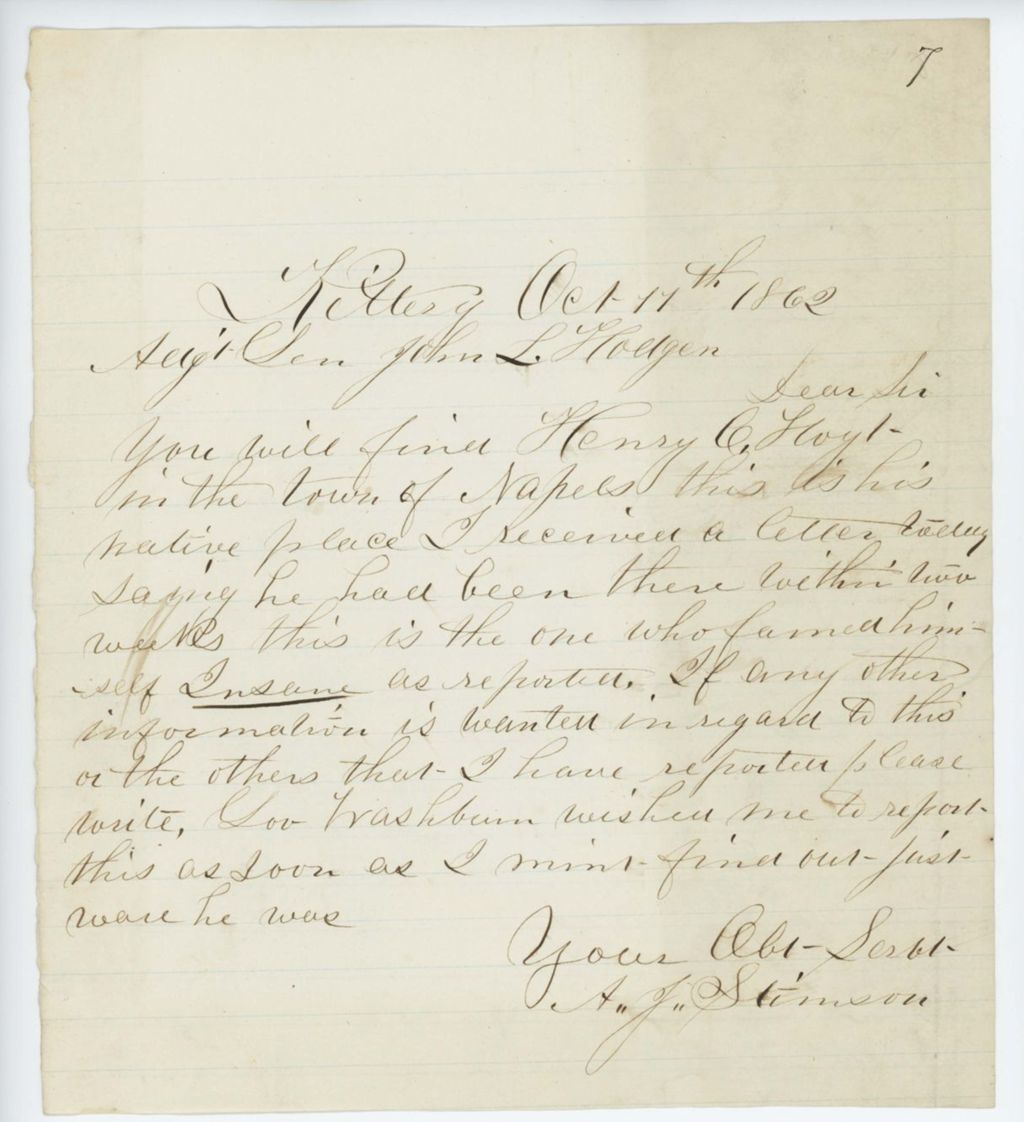 7
Kittery Oct 11th 1862
Adgt Gen John L. Hodgen
Dear Sir
You will find Henry C. Hoyt
in the town of Napels this is his
native place I received a letter today
saying he had been there within two
weeks this is the one who famed him-
-self Insane as reported. If any other
information is wanted in regard to this
or the others that I have reported please
write, Gov Washburn wished me to report
this as soon as I mint find out just
ware he was
Your Obt Servt
A,, J,, Stimson